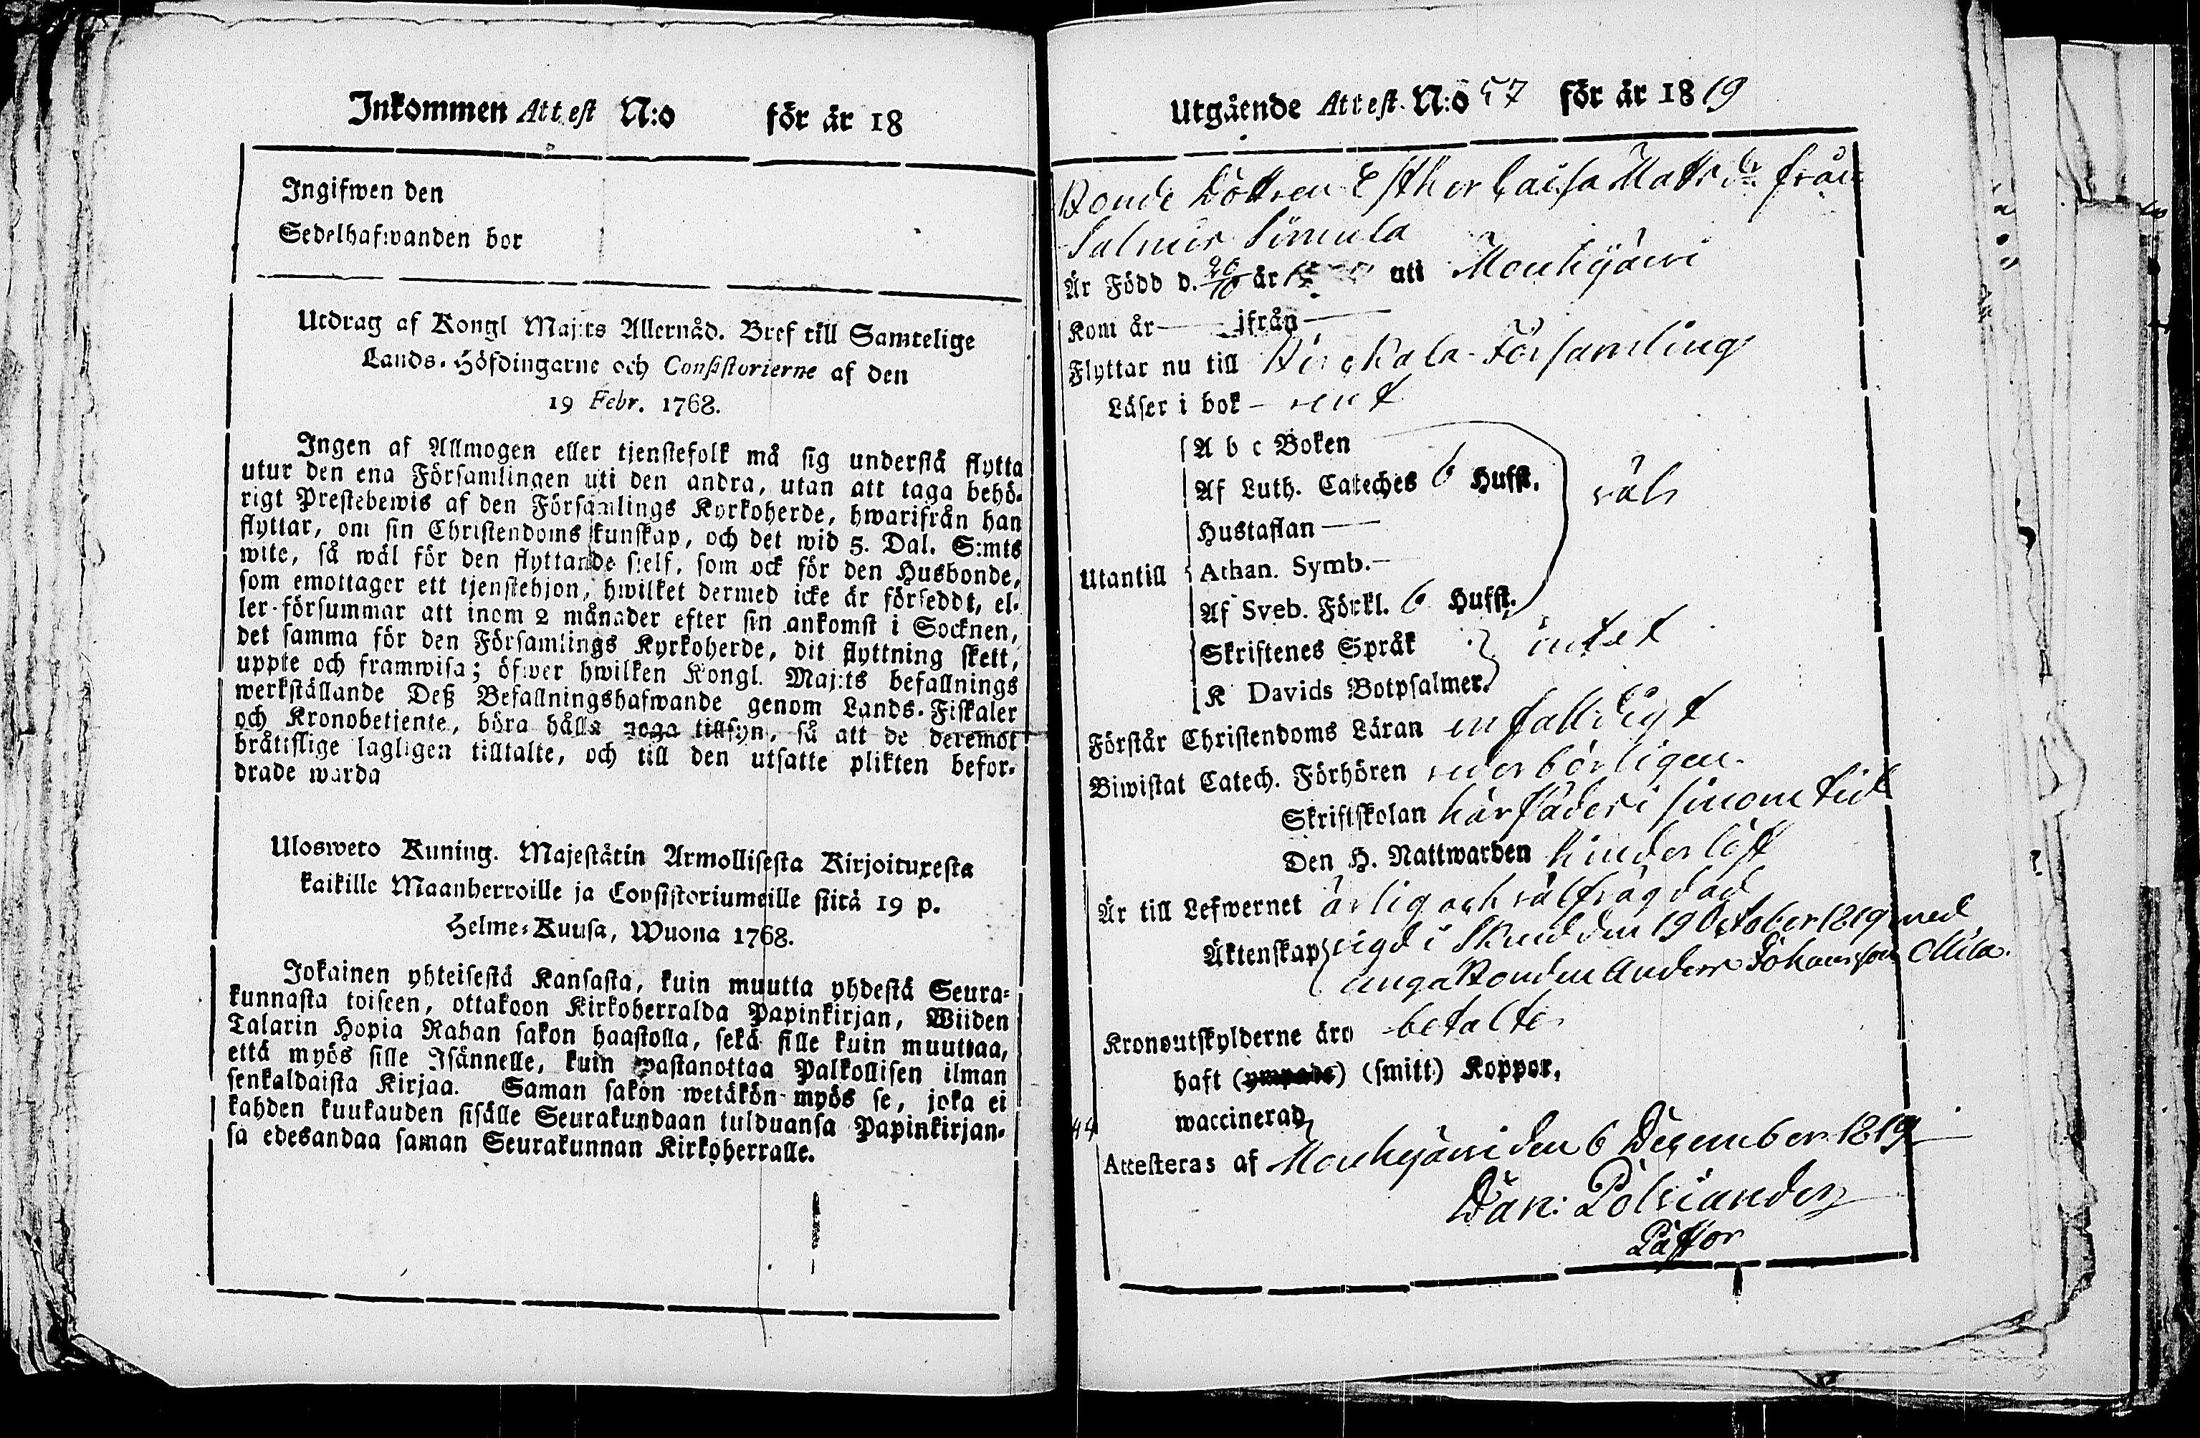 Inkommen Attest N:o för år 18
Ingifwen den
Sedelhafwanden bor
Utdrag af Kongl Maj:ts Allernåd. Bref till Samtelige
Lands-Höfdingarne och Consistorierne af den
19 Febr. 1768.
Ingen af Allmogen eller tjenstefolk må sig understå flytta
utur den ena Församlingen uti den andra, utan att taga behö-
rigt Prestebewis af den Församlings Kyrkoherde, hwarifrån han
flyttar, om sin Christendoms kunskap, och det wid 5. Dal. S:mts
wite, så wäl för den flyttande sielf, som ock för den Husbonde,
som emottager ett tjenstehjon, hwilket dermed icke är förseddt, el-
ler försummar att inom 2 månader efter sin ankomst i Socknen,
det samma för den Församlings Kyrkoherde, dit flyttning skett,
uppte och framwisa; öfwer hwilken Kongl. Maj:ts befallnings
werkställande Deß Befallningshafwande genom Lands-Fiskaler
och Kronobetjente, böra hålla noga tillsyn, så att de deremot
bråtislige lagligen tilltalte, och till den utsatte plikten befor-
drade warda
Ulosweto Kuning. Majestätin Armollisesta Kirjoituxesta
kaikille Maanherroille ja Consistoriumeille siitä 19 p.
Helme-Kuusa, Wuona 1768.
Jokainen yhteisestä Kansasta, kuin muutta yhdestä Seura-
kunnasta toiseen, ottakoon Kirkoherralda Papinkirjan, Wiiden
Talarin Hopia Rahan sakon haastolla, sekä sille kuin muuttaa,
että myös sille Isännelle, kuin wastanottaa Palkollisen ilman
senkaldaista Kirjaa. Saman sakon wetäkön myös se, joka ei
kahden kuukauden sisälle Seurakundaan tulduansa Papinkirjan-
sa edesandaa saman Seurakunnan Kirkoherralle.
Utgående Attest. N:o 57 för år 1819
Bonde Dottren Esther Caisa Matsdr från
Salmis Simula
Är Född d. 20/10 år uti Mouhijärvi
Kom år — ifrån —
Flyttar nu till Birckala Församling
Läser i bok - rent
A b c Boken
Af Luth. Cateches 6 Hufst.
väl
Hustaflan —
Utantill
Athan. Symb. —
Af Sveb. Förkl. 6 Hufst.
Skriftenes Språk
intet
K Davids Botpsalmer.
Förstår Christendoms Läran enfalldigt
Biwistat Catech. Förhören vederbörligen.
Skriftskolan härstädes i sinom tid
Den H. Nattwarden hinderlöst
Är till Lefwernet ärlig och välfrägdad
Äktenskap vigd i Sked den 19 October 1819 med
unga Bonden Anders Johansson
Kronoutskylderne äro betalte
haft (ympade) (smitt) Koppor,
waccinerad
44
Attesteras af Mouhijärvi den 6 December 1819
Dan: Polviander
Pastor